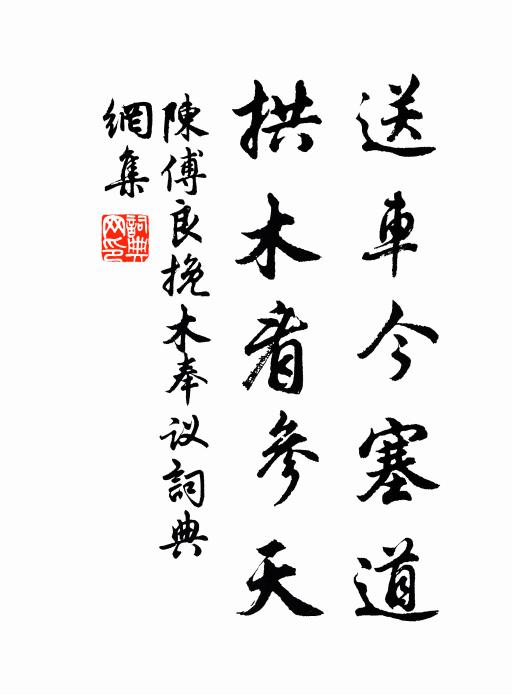 送車今塞道
拱木看參天
陳傅良挽木奉议詞典
網集
詞典網印